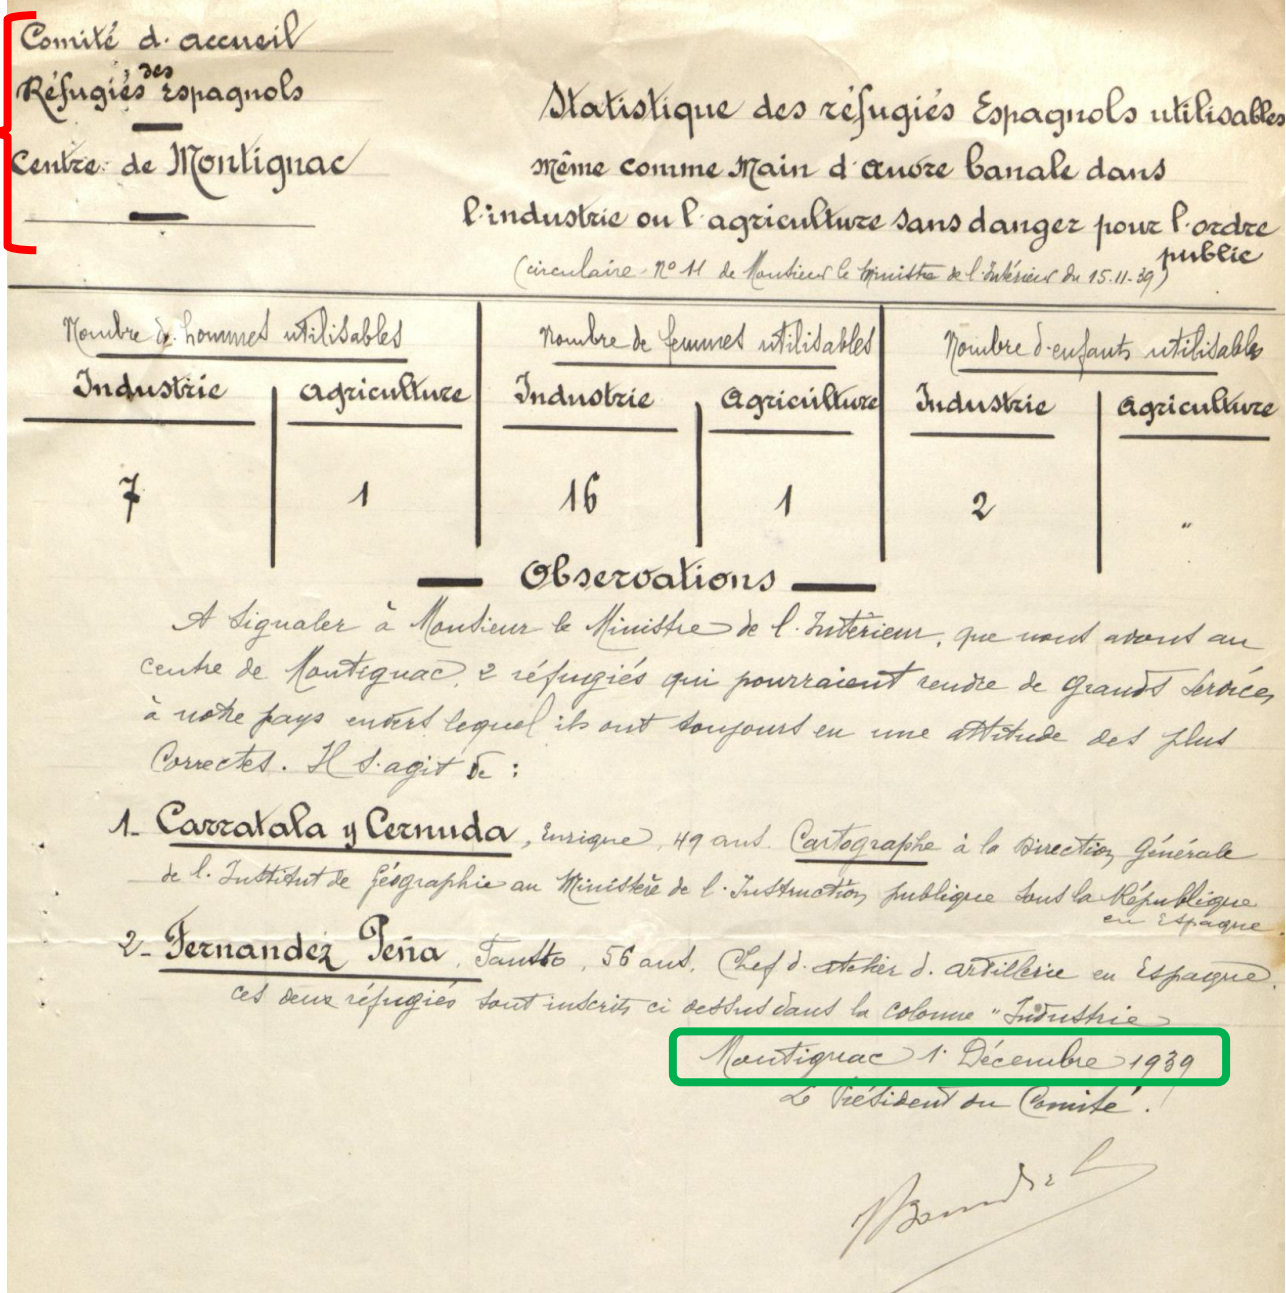 Comité d'accueil
des
Réfugiés Espagnols
Centre de Montignac
Statistique des réfugiés Espagnols utilisables
même comme Main d'œuvre banale dans
l'industrie ou l'agriculture sans danger pour l'ordre
public
(circulaire n° 11 de Monsieur le Ministre de l'Intérieur du 15-11-39)
Nombre de hommes utilisables Nombre de femmes utilisables Nombre d'enfants utilisables
Industrie Agriculture Industrie Agriculture Industrie Agriculture
7 1 16 1 2 "
Observations
A signaler à Monsieur le Ministre de l'Intérieur, que nous avons au
centre de Montignac, 2 réfugiés qui pourraient rendre de grands services
à notre pays envers lequel ils ont toujours eu une attitude des plus
Correctes. Il s'agit de :
1- Carratala y Cernuda, Enrique, 49 ans. Cartographe à la Direction Générale
de l'Institut de Géographie au Ministère de l'Instruction publique sous la République
en Espagne
2- Fernandez Peña, Fausto, 56 ans, Chef d'atelier d'artillerie en Espagne.
ces deux réfugiés sont inscrits ci dessus dans la colonne "Industrie
Montignac 1· Décembre 1939
Le Président du Comité.